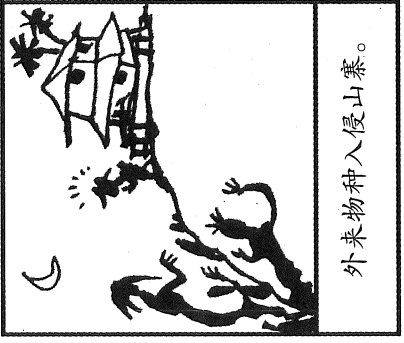 外来物种入侵山寨。